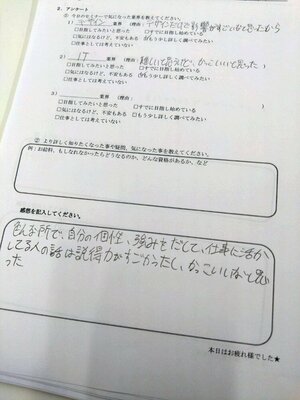 2. アンケート
① 今回のセミナーで気になった業界を教えてください。
1) デザイン 業界 (理由: デザインだけで影響がすごいなと思ったから
□目指してみたいと思った □すでに目指し始めている
□気にはなるけど、不安もある ☑もう少し詳しく調べてみたい
□仕事としては考えていない
2) IT 業界 (理由: 難しいと思うけど、かっこいいと思った)
□目指してみたいと思った □すでに目指し始めている
□気にはなるけど、不安もある ☑もう少し詳しく調べてみたい
□仕事としては考えていない
3) 業界 (理由: )
□目指してみたいと思った □すでに目指し始めている
□気にはなるけど、不安もある □もう少し詳しく調べてみたい
□仕事としては考えていない
② より詳しく知りたくなった事や疑問、気になった事を教えてください。
例:お給料、もしなれなかったらどうなるのか、どんな資格があるか、など
感想を記入してください。
色んな所で、自分の個性、強みをだして、仕事に活か
してる人の話は説得力がすごかったし、かっこいいなと思
った
本日はお疲れ様でした★